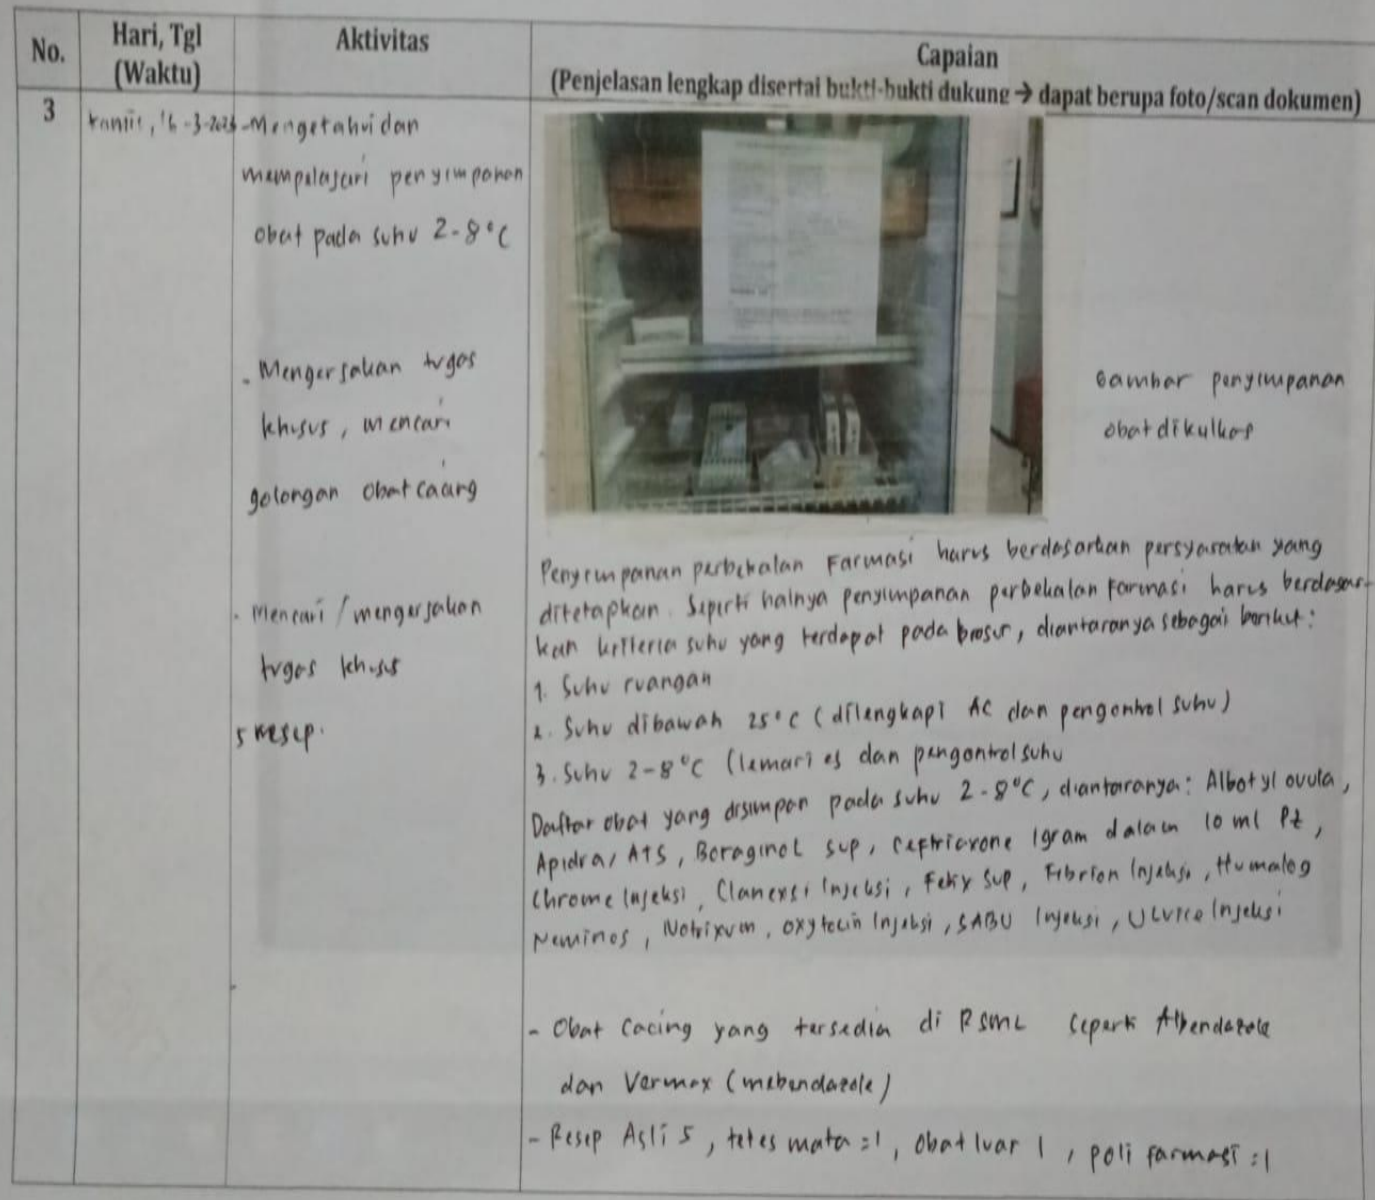 No.
Hari, Tgl
(Waktu)
Aktivitas
Capaian
(Penjelasan lengkap disertai bukti-bukti dukung → dapat berupa foto/scan dokumen)
3
- Mengetahui dan
mempelajari penyimpanan
obat pada suhu 2-8°C
- Mengerjakan tugas
khusus, mencari
golongan obat cacing
- Mencari/mengerjakan
tugas khusus
5 resep.
Gambar penyimpanan
obat dikulkas
Penyimpanan perbekalan Farmasi harus berdasarkan persyaratan yang
ditetapkan. Seperti halnya penyimpanan perbekalan Farmasi harus berdasar-
kan kriteria suhu yang terdapat pada brosur, diantaranya sebagai berikut:
1. Suhu ruangan
2. Suhu dibawah 25°C (dilengkapi AC dan pengontrol suhu)
3. Suhu 2-8°C (lemari es dan pengontrol suhu
Daftar obat yang disimpan pada suhu 2-8°C, diantaranya: Albotyl ovula,
Apidra, ATS, Boraginol sup, 1gram dalam 10 ml
Injeksi, Injeksi, Sup, Injeksi, Humalog
Oxytocin Injeksi, SABU Injeksi, Injeksi
- Obat Cacing yang tersedia di RSML seperti Albendazole
dan Vermox (mebendazole)
- Resep Asli 5, tetes mata =1, obat luar 1, poli farmasi =1